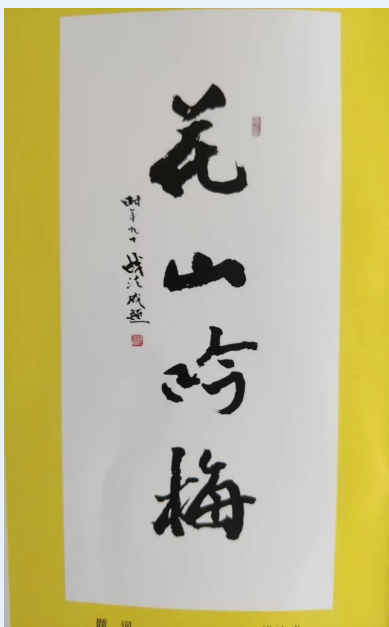 花山吟梅
时年九十
战法成题
题 词